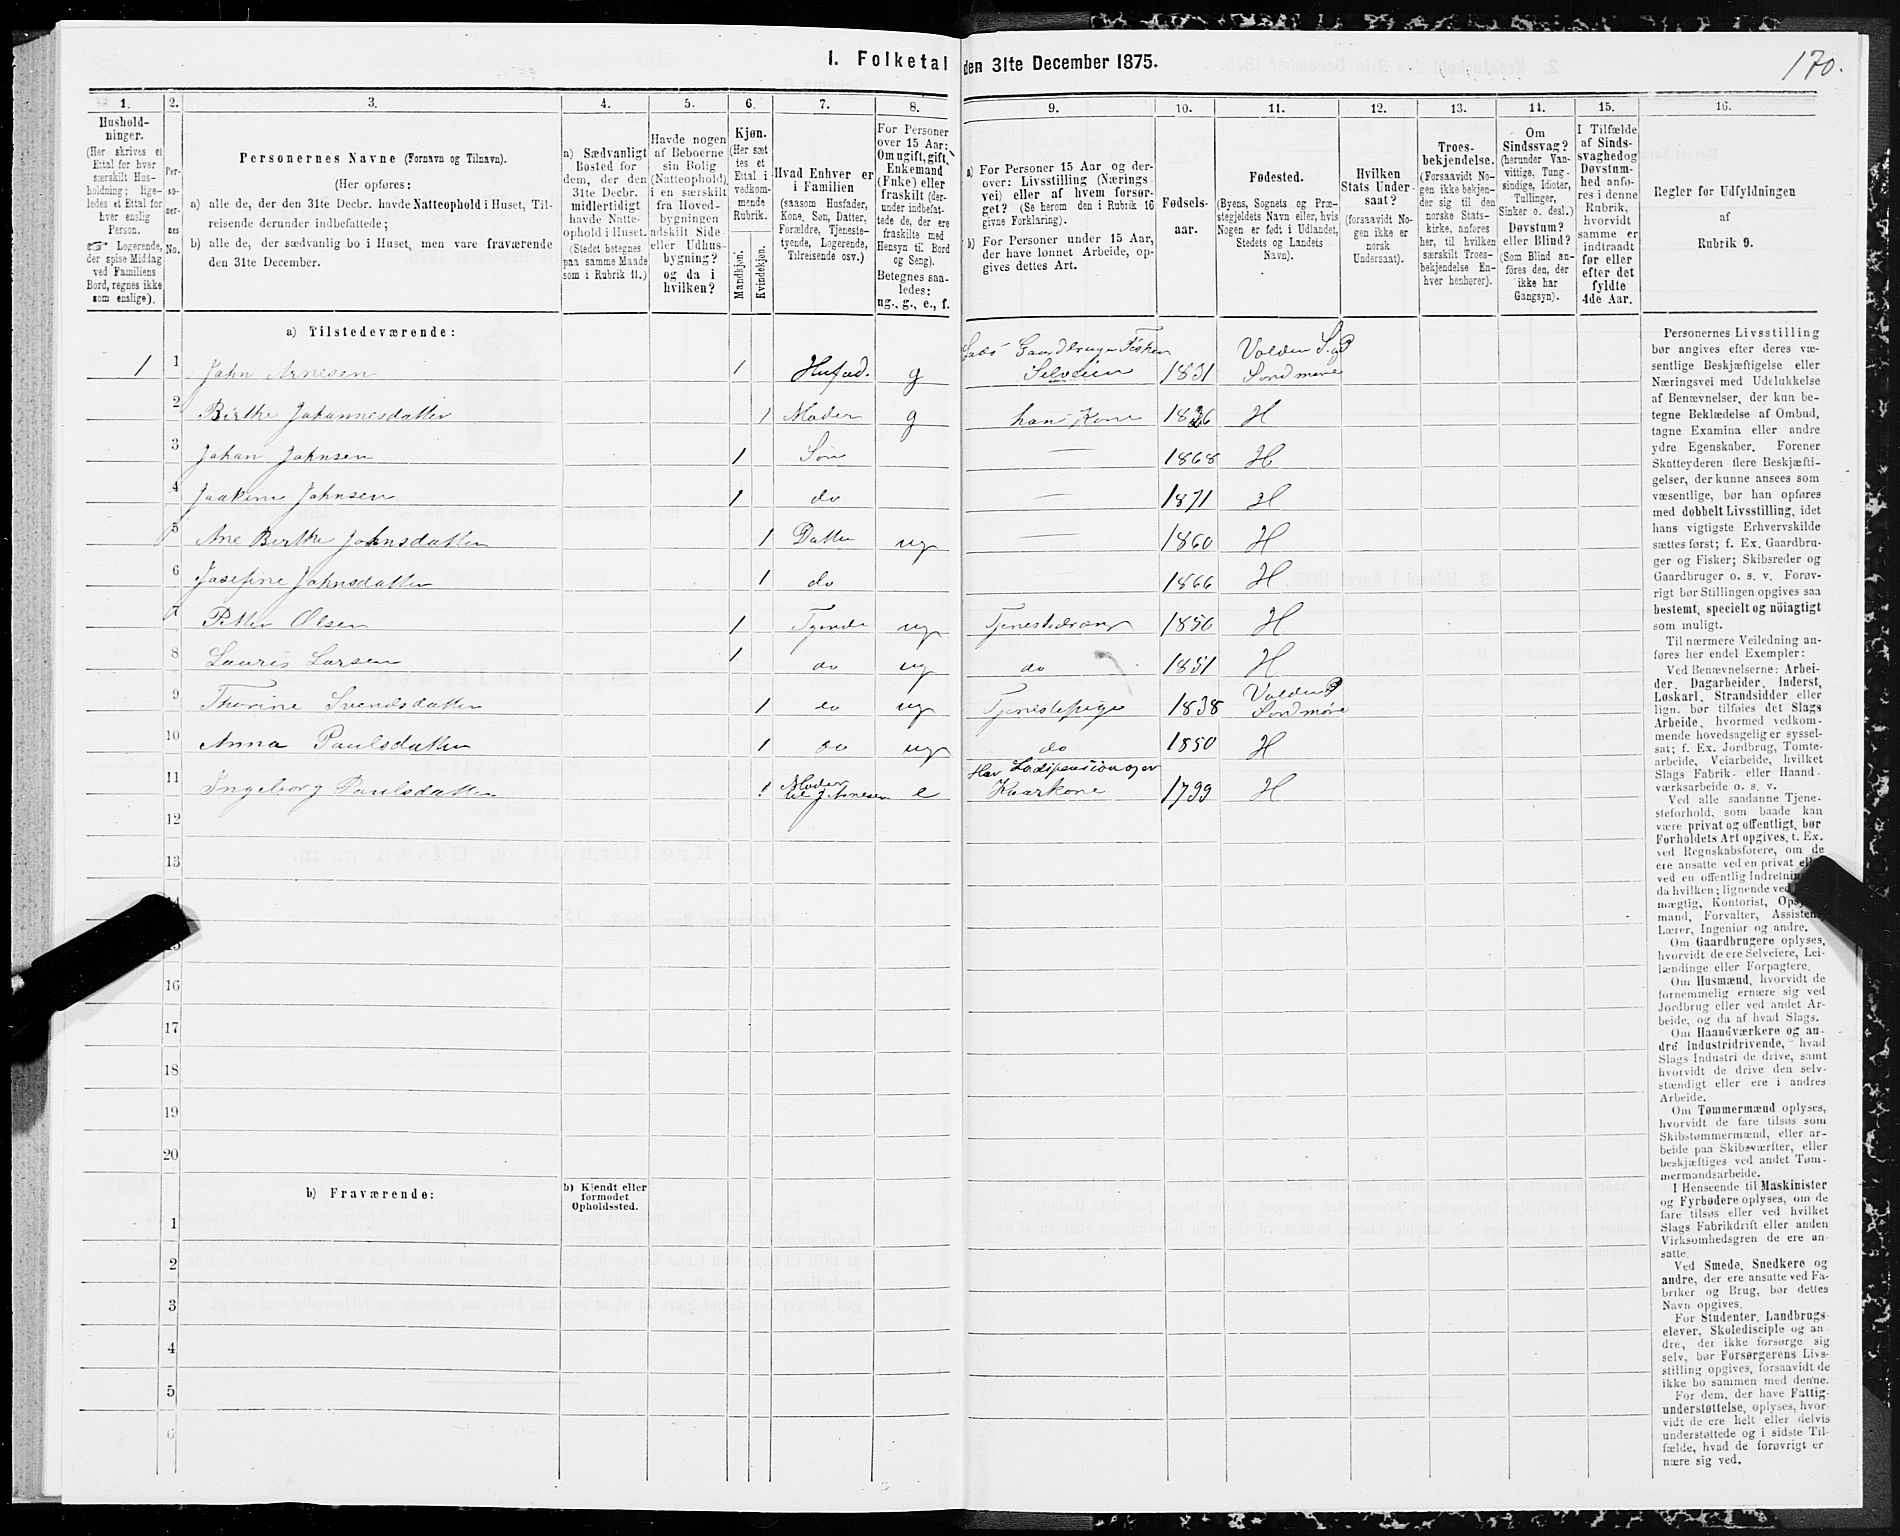 170.
I. Folketal den 31te December 1875.
1. 2. 3. 4. 5. 6. 7. 8. 9. 10. 11. 12. 13. 14. 15. 16.
Hushold-
ninger.
(Her skrives et
Ettal for hver
særskilt Hus-
holdning; lige-
ledes et Ettal for
hver enslig
Person.
☞ Logerende,
der spise Middag
ved Familiens
Bord, regnes ikke
som enslige).
Per-
so-
ner-
nes
No.
Personernes Navne (Fornavn og Tilnavn).
(Her opføres:
a) alle de, der den 31te Decbr. havde Natteophold i Huset, Til-
reisende derunder indbefattede;
b) alle de, der sædvanlig bo i Huset, men vare fraværende
den 31te December.
a) Sædvanligt
Bosted for
dem, der den
31te Decbr.
midlertidigt
havde Natte-
ophold i Huset.
(Stedet betegnes
paa samme Maade
som i Rubrik 11.)
Havde nogen
af Beboerne
sin Bolig
(Natteophold)
i en særskilt
fra Hoved-
bygningen
adskilt Side-
eller Udhus-
bygning?
og da i
hvilken?
Kjøn.
(Her sæt
tes et
Ettal i
vedkom-
mende
Rubrik.
Mandkjøn.
Kvindekjøn.
Hvad Enhver er
i Familien
(saasom Husfader,
Kone, Søn, Datter,
Forældre, Tjeneste-
tyende, Logerende,
Tilreisende osv.)
For Personer
over 15 Aar:
Om ugift, gift,
Enkemand
(Enke) eller
fraskilt (der-
under indbefat-
tede de, der ere
fraskilte med
Hensyn til Bord
og Seng).
Betegnes saa-
ledes:
ug., g., e., f.
a) For Personer 15 Aar og der-
over: Livsstilling (Nærings
vei) eller af hvem forsør-
get? (Se herom den i Rubrik 16
givne Forklaring).
b) For Personer under 15 Aar,
der have lønnet Arbeide, op-
gives dettes Art.
Fødsels-
aar.
Fødested.
(Byens, Sognets og Præ-
stegjeldets Navn eller, hvis
Nogen er født i Udlandet,
Stedets og Landets
Navn).
Hvilken
Stats Under-
saat?
(forsaavidt No-
gen ikke er
norsk
Undersaat).
Troes-
bekjendelse.
(Forsaavidt No-
gen ikke bekjen-
der sig til den
norske Stats-
kirke, anføres
her, til hvilken
særskilt Troes-
bekjendelse En-
hver henhører).
Om
Sindssvag?
(herunder Van-
vittige, Tung-
sindige, Idioter,
Tullinger,
Sinker o. desl.)
Døvstum?
eller Blind?
(Som Blind an-
føres den, der
ikke har
Gangsyn).
I Tilfælde
af Sinds-
svaghedog
Døvstum-
hed anfø-
res i denne
Rubrik,
hvorvidt
samme er
indtraadt
før eller
efter det
fyldte
4de Aar.
Regler for Udfyldningen
af
Rubrik 9.
a) Tilstedeværende:
1 1 John Arnesen 1 Husfad. g Gaardbruger Fisker Selveier 1831 Volden S. P Søndmøre
2 Birthe Johannesdatter 1 Moder g hans Kone 1826 H
3 Johan Johnsen 1 Søn — 1868 H
4 Joakim Johnsen 1 do — 1871 H
5 Ane Birthe Johnsdatter 1 Datter ug — 1860 H
6 Josefine Johnsdatter 1 do 1866 H
7 Petter Olsen 1 Tyende ug Tjenestedreng 1850 H
8 Lauris Larsen 1 do ug do 1851 H
9 Thorine Svendsdatter 1 do ug Tjenestepige 1838 Volden P Søndmøre
10 Anna Paulsdatter 1 do ug do 1850 H
11 Ingeborg Paulsdatter 1 Moder til J Arnesen e Kaarkone 1799 H
12
13
15
16
17
18
19
20
b) Fraværende:
b) Kjendt eller
formodet
Opholdssted.
1
2
3
4
5
6
Personernes Livsstilling
bør angives efter deres væ-
sentlige Beskjæftigelse eller
Næringsvei med Udelukkelse
af Benævnelser, der kun be-
tegne Beklædelse af Ombud,
tagne Examina eller andre
ydre Egenskaber. Forener
Skatteyderen flere Beskjæfti-
gelser, der kunne ansees som
væsentlige, bør han opføres
med dobbelt Livsstilling, idet
hans vigtigste Erhvervskilde
sættes først; f. Ex. Gaardbru-
ger og Fisker; Skibsreder og
Gaardbruger o. s. v. Forøv-
rigt bør Stillingen opgives saa
bestemt, specielt og nöiagtigt
som muligt.
Til nærmere Veiledning an-
føres her endel Exempler:
Ved Benævnelserne: Arbei-
der, Dagarbeider, Inderst,
Løskarl, Strandsidder eller
lign. bør tilføies det Slags
Arbeide, hvormed vedkom-
mende hovedsagelig er syssel-
sat; f. Ex. Jordbrug, Tomte-
arbeide, Veiarbeide, hvilket
Slags Fabrik- eller Haand-
værksarbeide o. s. v.
Ved alle saadanne Tjene-
steforhold, som baade kan
være privat og offentligt, bør
Forholdets Art opgives, t. Ex.
ved Regnskabsførere, om de
ere ansatte ved en privat eller
ved en offentlig Indretning
da hvilken; lignende ved
mægtig, Kontorist, Opsyns-
mand, Forvalter, Assistent,
Lærer, Ingeniør og andre.
Om Gaardbrugere oplyses,
hvorvidt de ere Selveiere, Lei-
lændinge eller Forpagtere.
Om Husmænd, hvorvidt de
fornemmelig ernære sig ved
Jordbrug eller ved andet Ar-
beide, og da af hvad Slags.
Om Haandværkere og an-
dre Industridrivende, hvad
Slags Industri de drive, samt
hvorvidt de drive den selv-
stændigt eller ere i andres
Arbeide.
Om Tømmermænd oplyses,
hvorvidt de fare tilsøs som
Skibstømmermænd, eller ar-
beide paa Skibsværfter, eller
beskjæftiges ved andet Tøm-
mermandsarbeide.
I Henseende til Maskinister
og Fyrbødere oplyses, om de
fare tilsøs eller ved hvilket
Slags Fabrikdrift eller anden
Virksomhedsgren de ere an-
satte.
Ved Smede, Snedkere og
andre, der ere ansatte ved Fa-
briker og Brug, bør dettes
Navn opgives.
For Studenter, Landbrugs-
elever, Skoledisciple og an-
dre, der ikke forsørge sig
selv, bør Forsørgerens Livs-
stilling opgives, forsaavidt de
ikke bo sammen med denne.
For dem, der have Fattig-
understøttelse, oplyses, hvor-
vidt de ere helt eller delvis
understøttede og i sidste Til-
fælde, hvad de forøvrigt er-
nære sig ved.